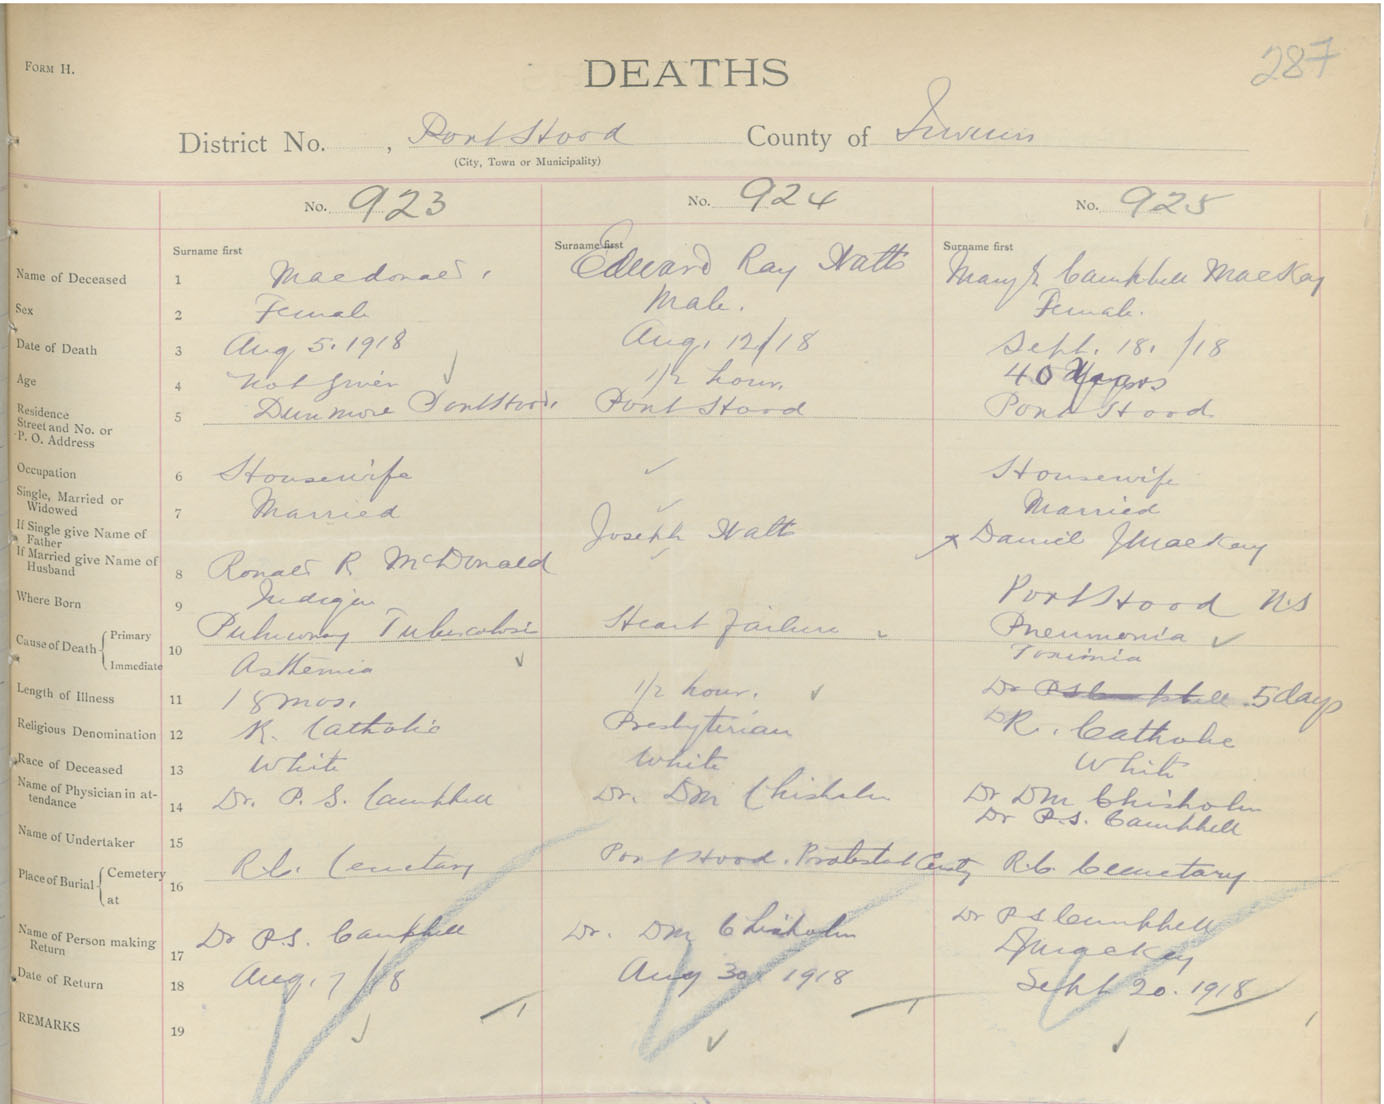 FORM H.
DEATHS
287
District No. , Port Hood County of Inverness
(City, Town or Municipality)
No. 923 No. 924 No. 925
Surname first Surname first Surname first
Name of Deceased 1 Macdonald, Edward Ray Watts Mary J. Campbell MacKay
Sex 2 Female Male. Female.
Date of Death 3 Aug 5. 1918 Aug. 12/18 Sept. 18. /18
Age 4 not given 1/2 hour. 40 Years
Residence Street and No. or P. O. Address 5 Dunmore Port Hood. Port Hood Port Hood
Occupation 6 Housewife Housewife
Single, Married or Widowed 7 Married Married
If Single give Name of Father Joseph Watts Daniel J MacKay
If Married give Name of Husband 8 Ronald R. McDonald
Where Born 9 Judique Port Hood N.S
Cause of Death Primary 10 Pulmonary Tuberculosis Heart Failure Pneumonia
Immediate Asthenia Toximia
Length of Illness 11 18 mos. 1/2 hour. Dr P S Campbell 5 days
Religious Denomination 12 R. Catholic Presbyterian R. Catholic
Race of Deceased 13 White White White
Name of Physician in attendance 14 Dr. P. S. Campbell Dr. DM Chisholm Dr DM Chisholm
Dr P.S. Campbell
Name of Undertaker 15
Place of Burial Cemetery at 16 R.C. Cemetary Port Hood. Protestant R.C. Cemetary
Name of Person making Return 17 Dr P.S. Campbell Dr. DM Chisholm Dr P S Campbell
DJ MacKay
Date of Return 18 Aug. 7/18 Aug 30. 1918 Sept 20. 1918
REMARKS 19